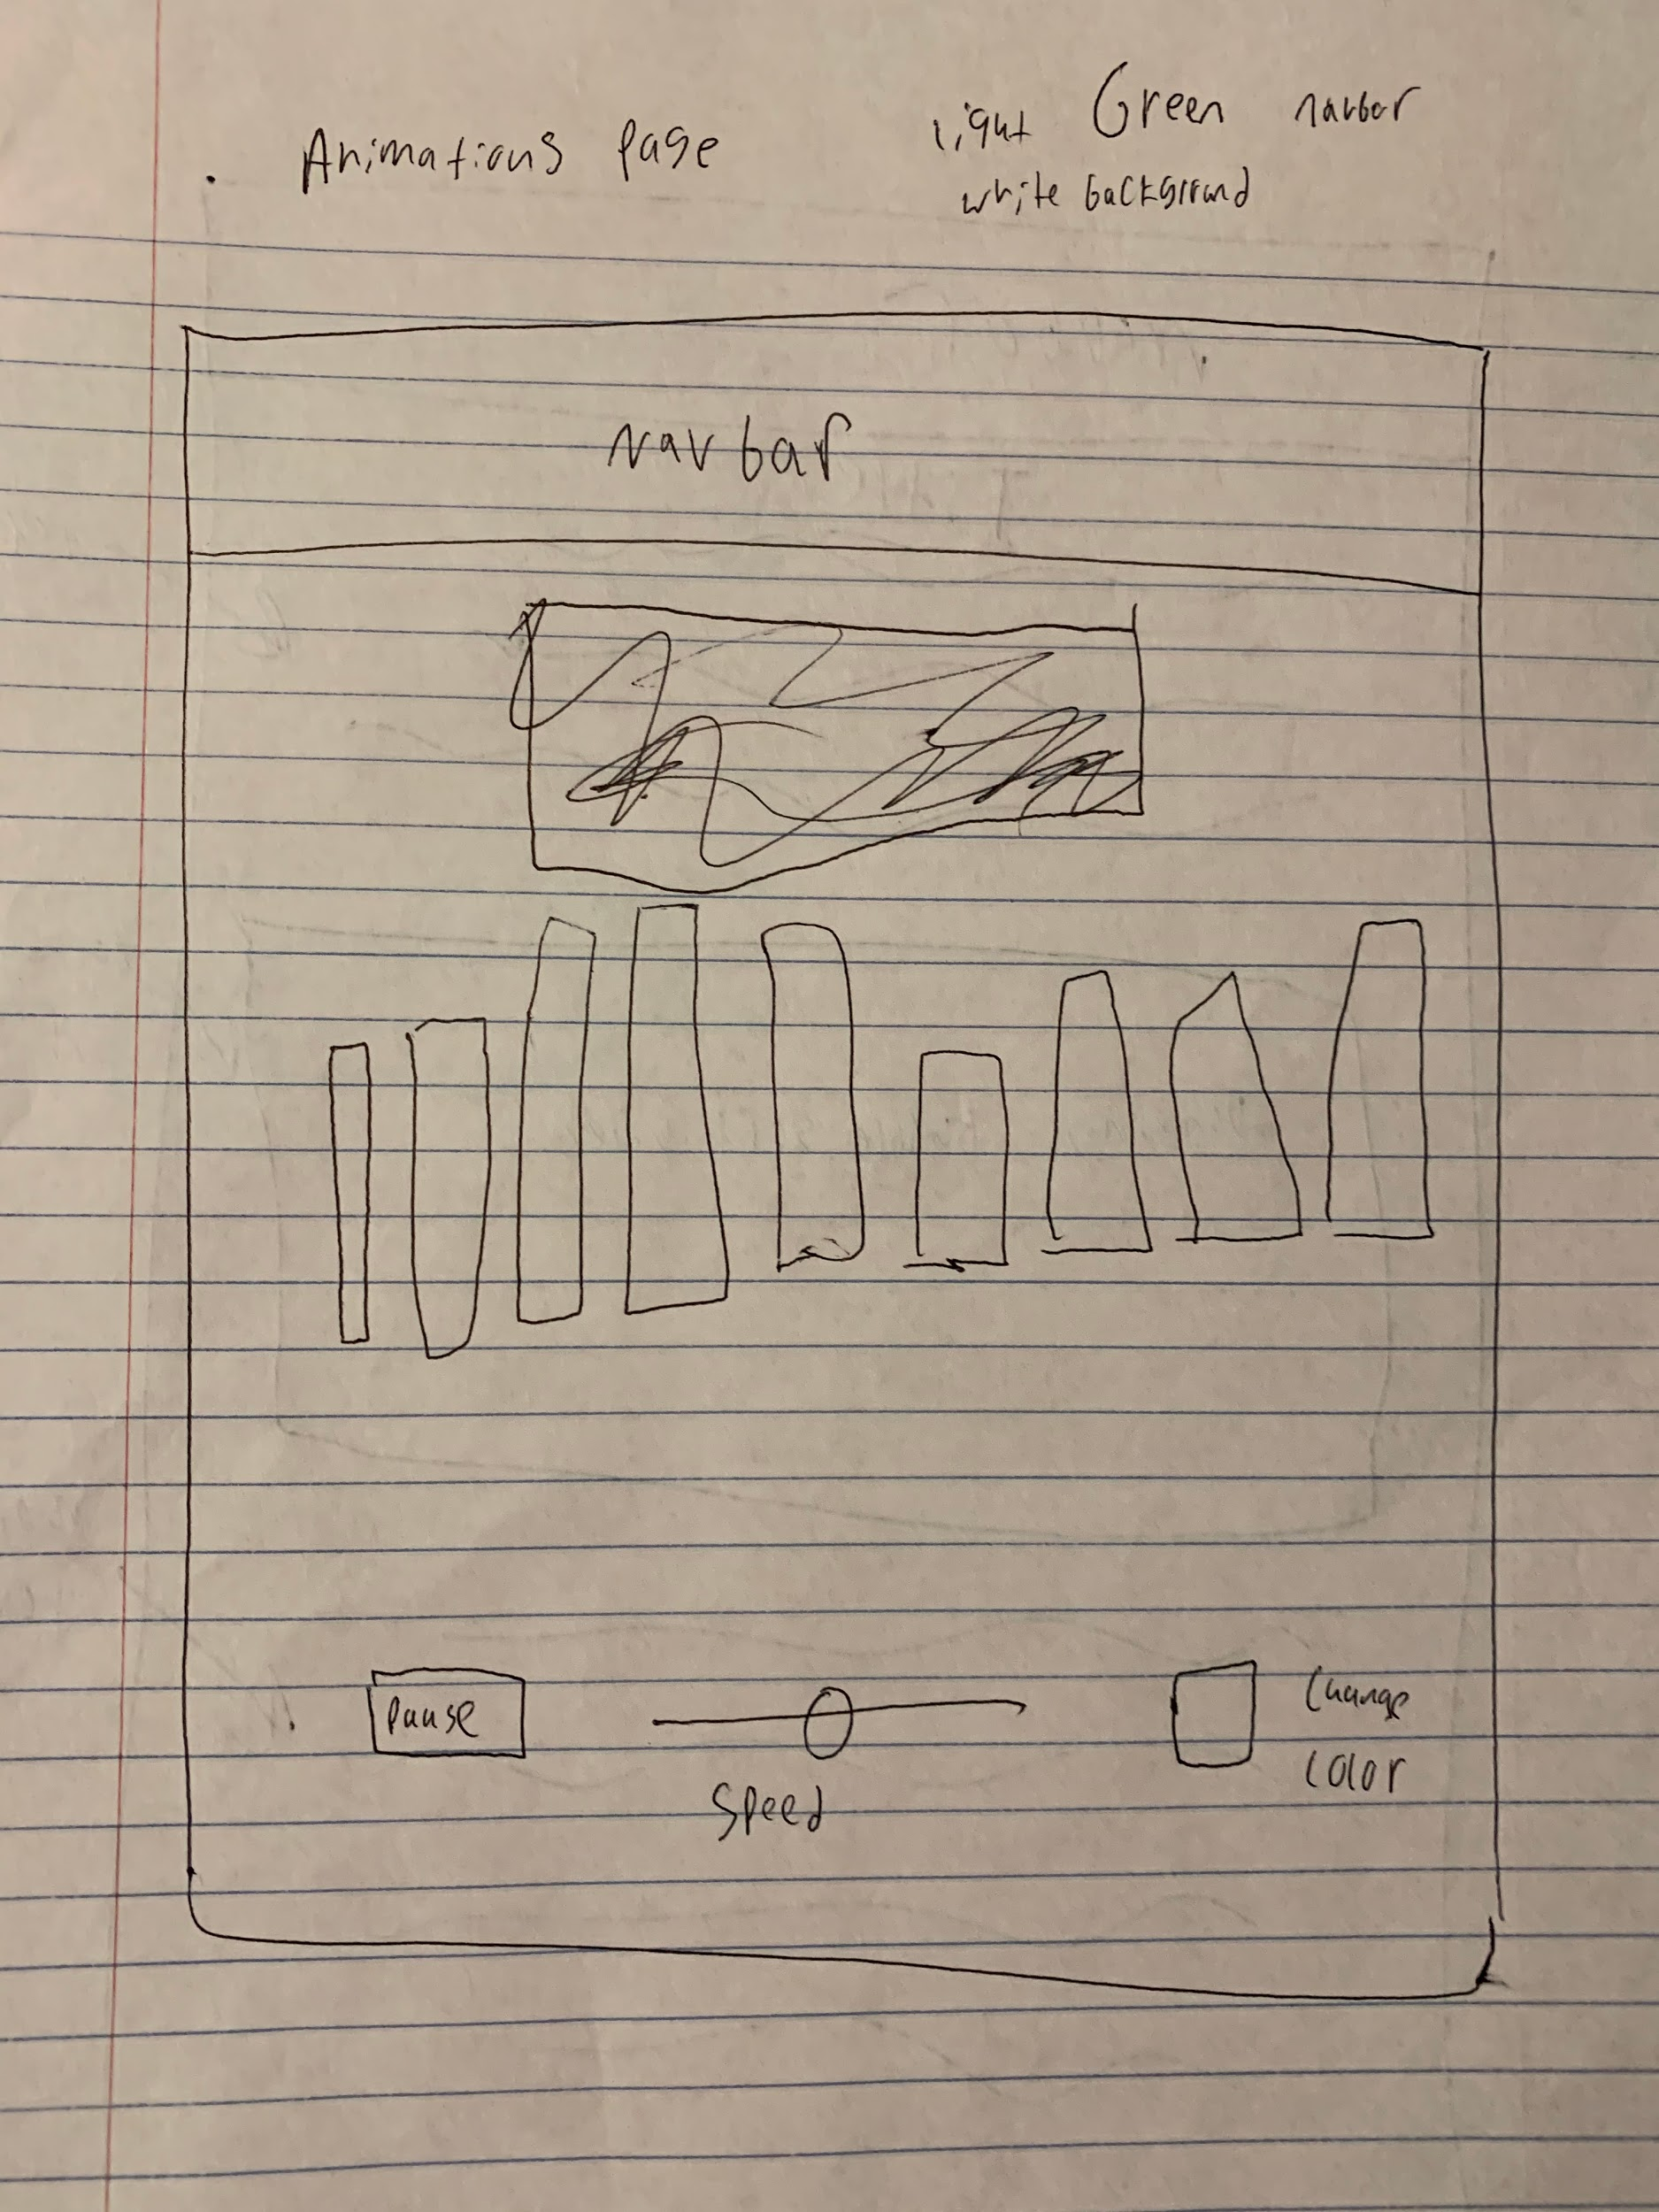 Animations Page
light Green navbar
white background
Navbar
Pause
Speed
Change
Color